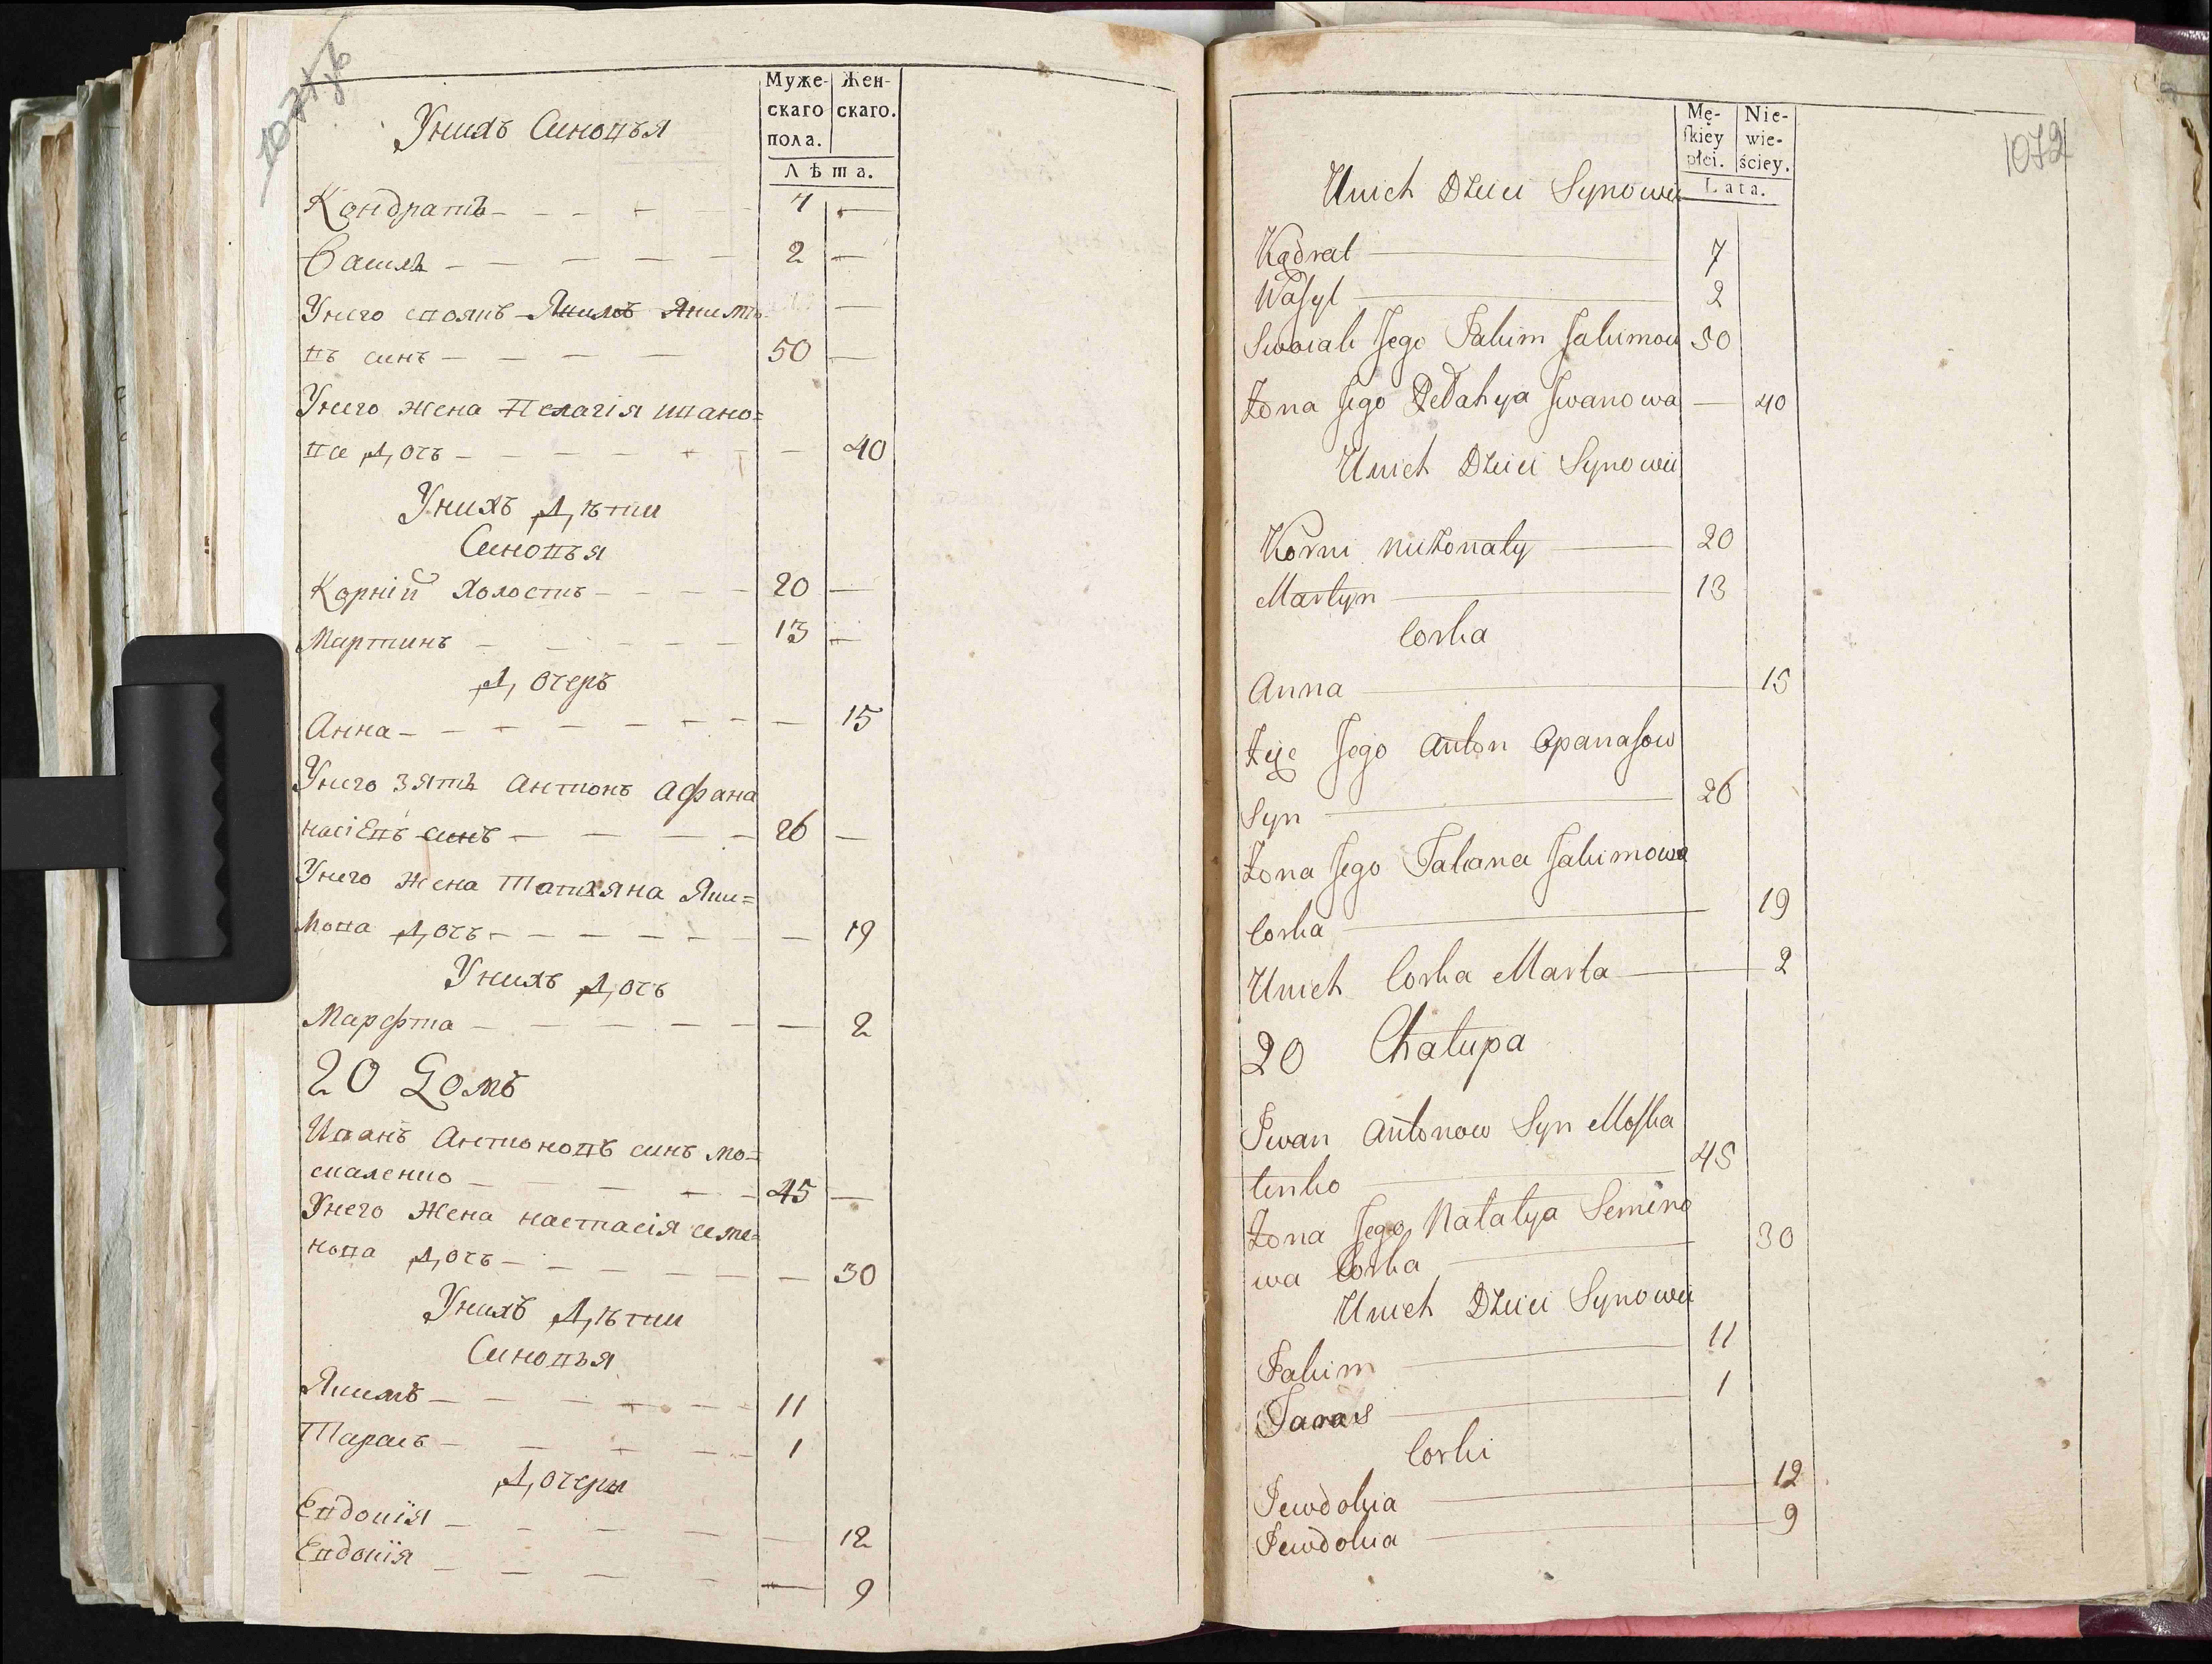 1071 об
Муже- Жен-
скаго скаго.
пола.
Лѣта.
Унихъ Синовья
Кондратъ 7 —
Василь 2 —
Унего своякъ Якимъ Якимо
въ синъ 50 —
Унего жена Пелагія ивано=
вa Дочъ — 40
Унихъ Дѣти
Синовья
Корній холостъ 20 —
Мартинъ 13 —
Дочеръ
Анна — 15
Унего зять Антонъ Афана
насіевъ синъ 26 —
Унего жена Татьяна Яки=
мова Дочъ — 19
Унихъ Дочъ
Марфта — 2
20 Домъ
Иванъ Антоновъ синъ мо=
скаленко 45 —
Унего жена настасія семе=
нова Дочъ — 30
Унихъ Дѣти
Синовья
Якимъ 11
Тарасъ 1
Дочеры
Евдокія — 12
Евдокія — 9
1072
Mę- Nie-
skiey wie-
płci. ściey.
Lata.
Unich Dzieci Synowie
Kądrat 7
Wasyl 2
Swoiak Jego Jakim Jakimow 50
Żona Jego Pełahya Jwanowa — 40
Unich Dzieci Synowie
Korni nieżonaty 20
Martyn 13
Corka
Anna 15
Zięc Jego Anton Opanasow
Syn 26
Żona Jego Tatiana Jakimowa
Corka 19
Unich Corka Marta 2
20 Chałupa
Jwan Antonow Syn Moska
lenko 45
Żona Jego Natalya Semino
wa Corka 30
Unich Dzieci Synowie
Jakim 11
Taras 1
Corki
Jewdokia 12
Jewdokia 9